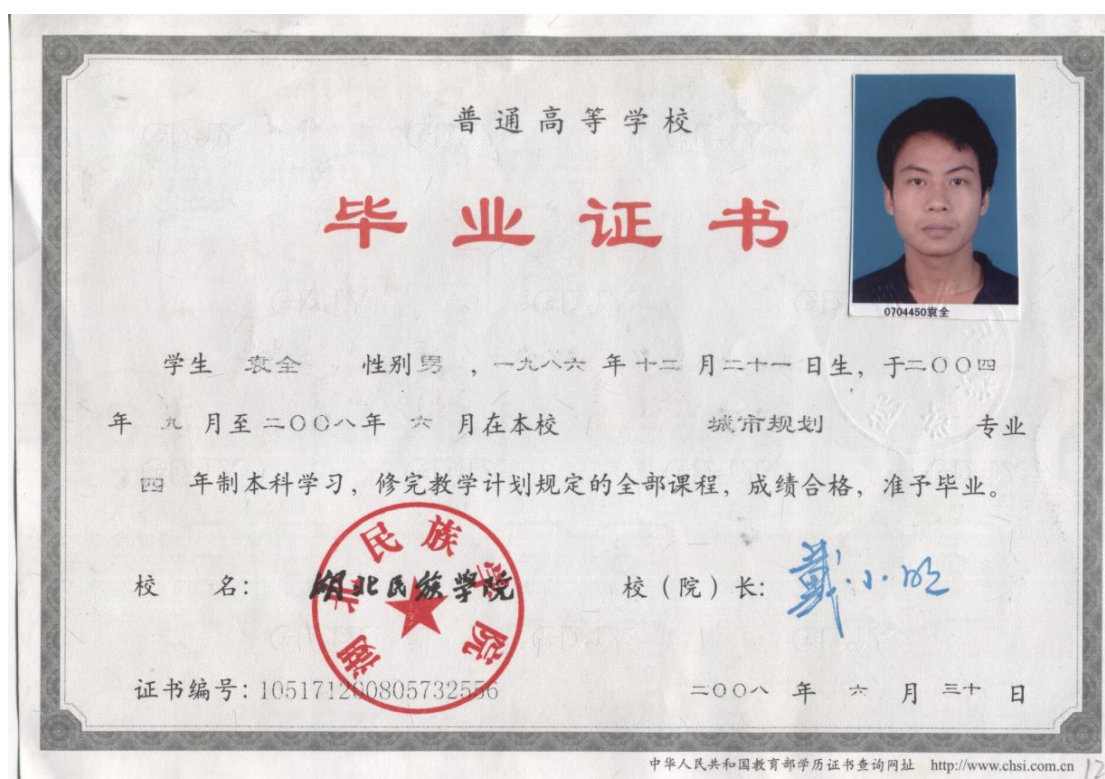 普通高等学校
毕业证书
0704450袁全
学生 袁全 性别男 ，一九八六 年 十二 月二十一 日生，于二〇〇四
年 九 月至 二〇〇八年 六 月在本校 城市规划 专业
四 年制本科学习，修完教学计划规定的全部课程，成绩合格，准予毕业。
湖北民族学院
校 名： 湖北民族学院 校（院）长： 戴小明
证书编号：105171200805732556 二〇〇八 年 六 月 三十 日
中华人民共和国教育部学历证书查询网址 http://www.chsi.com.cn